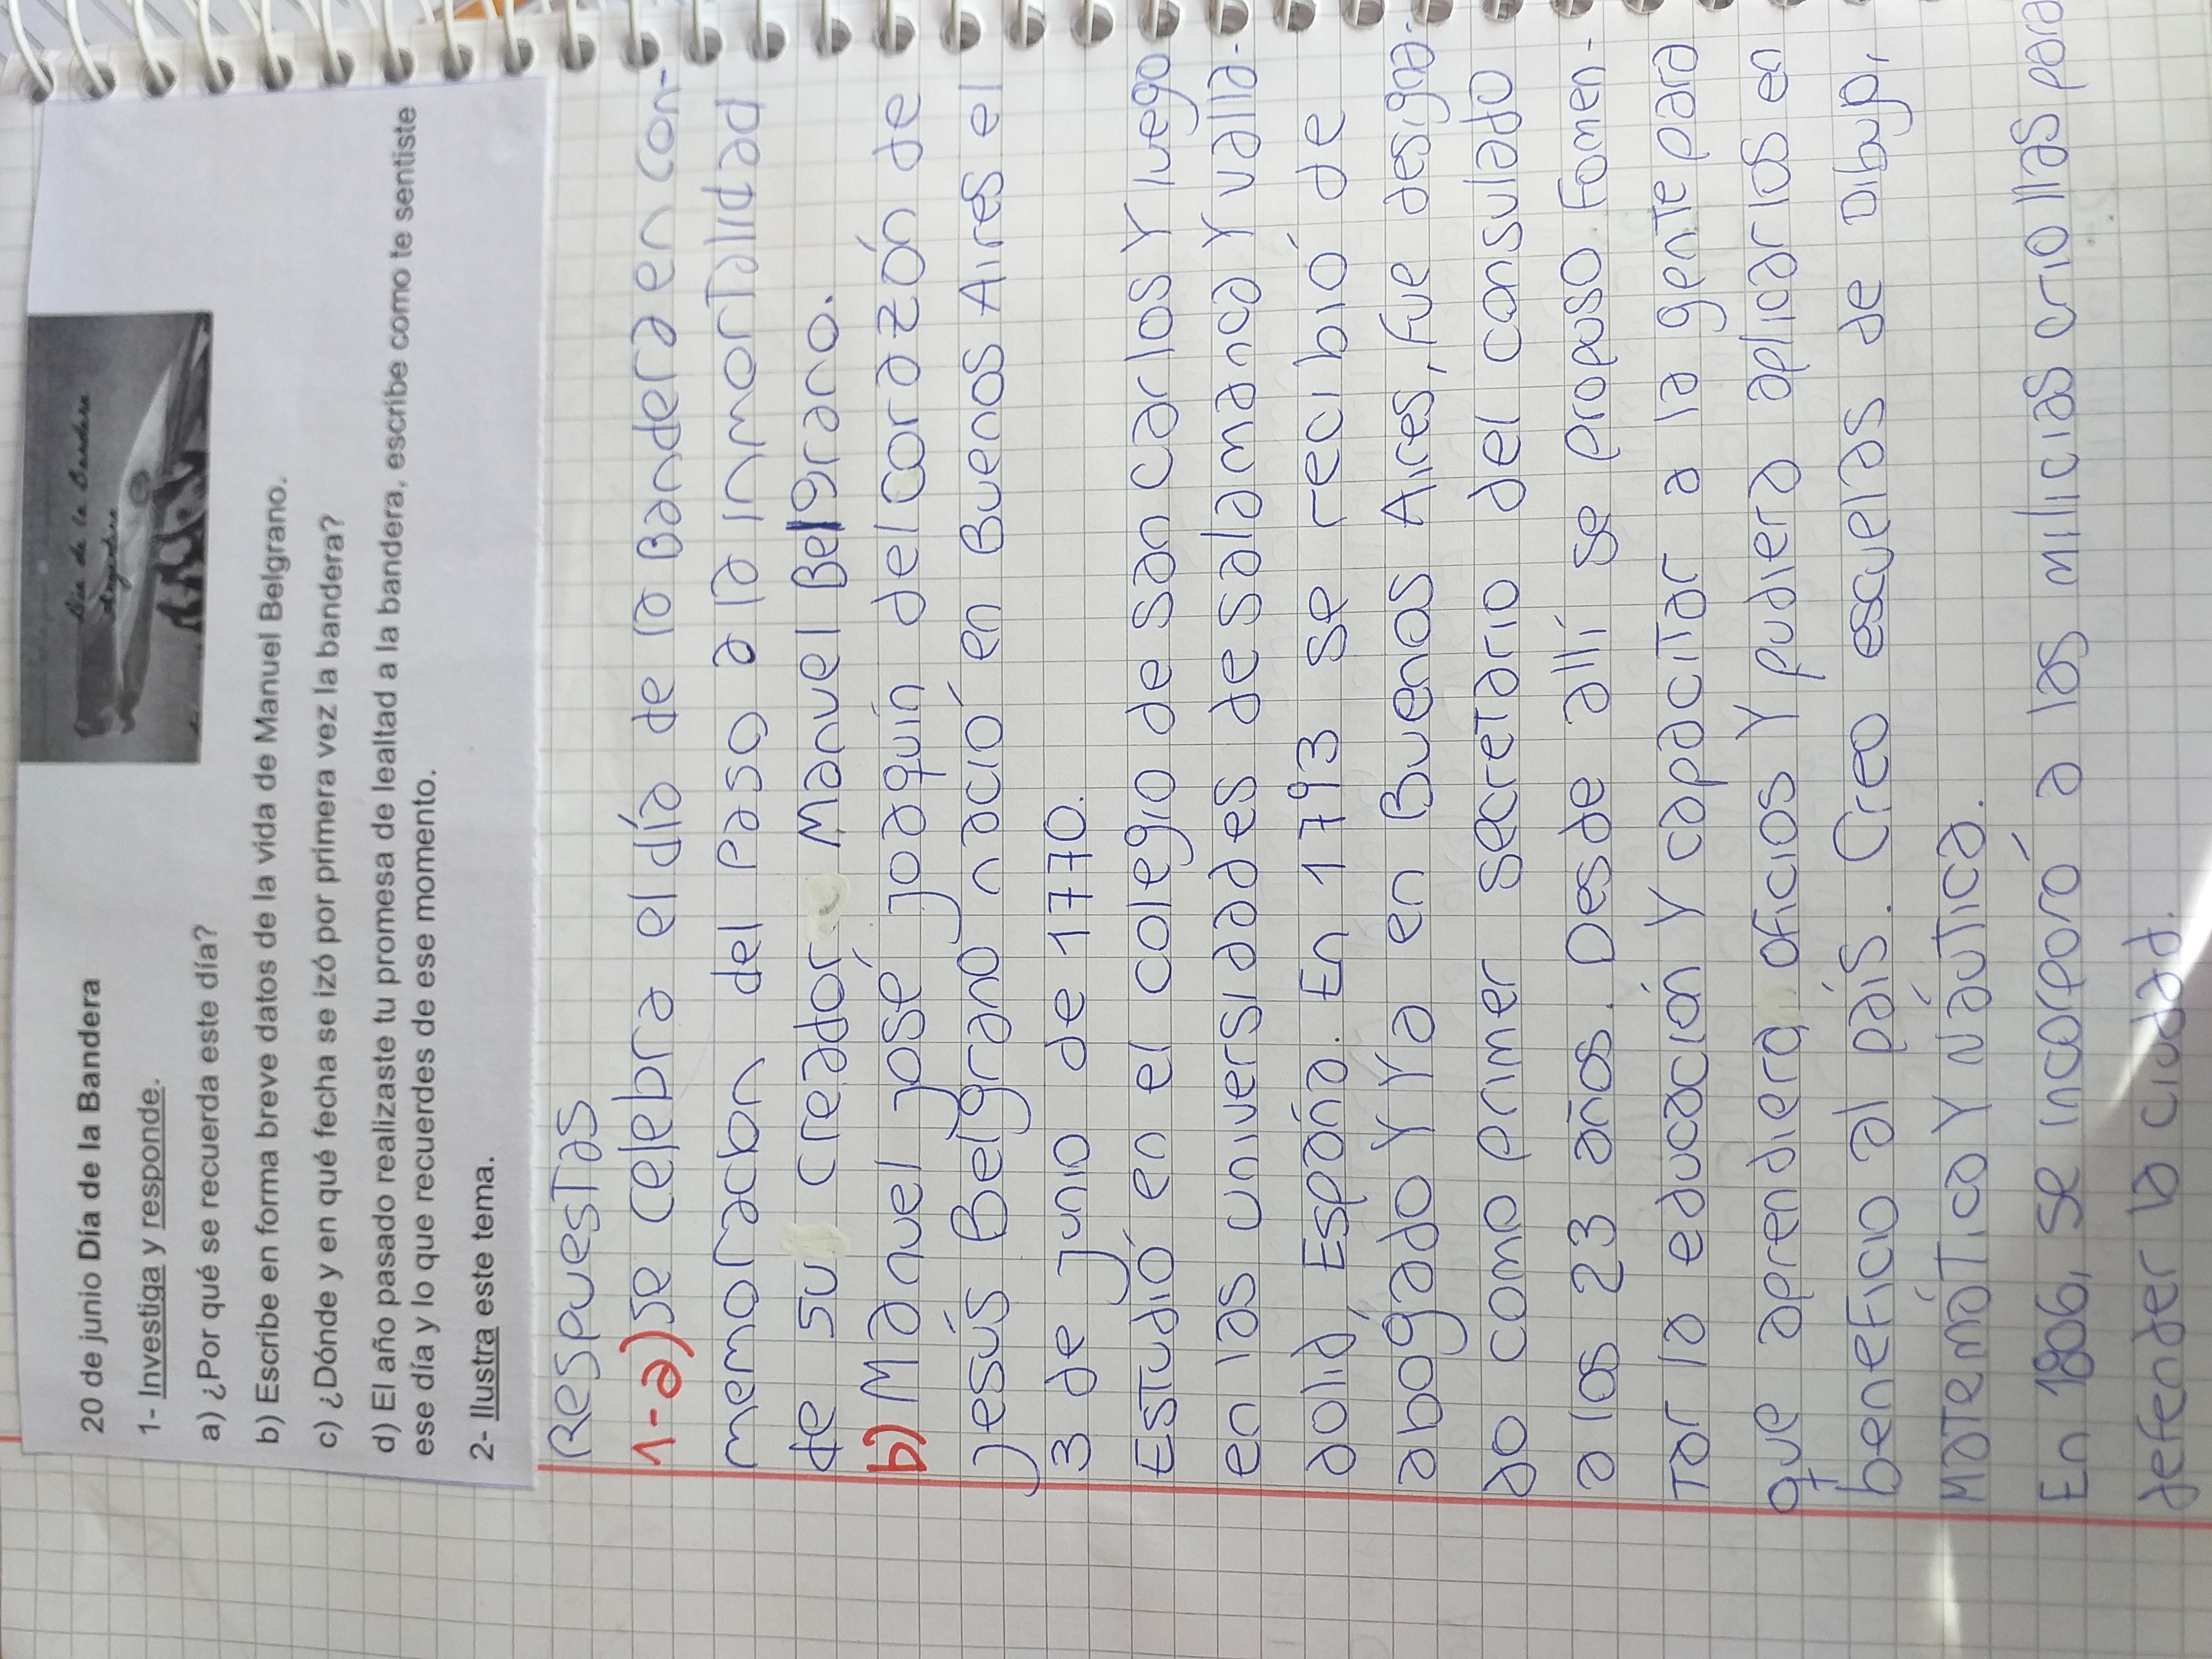 Día de la Bandera
Argentina
20 de junio Día de la Bandera
1- Investiga y responde.
a) ¿Por qué se recuerda este día?
b) Escribe en forma breve datos de la vida de Manuel Belgrano.
c) ¿Dónde y en qué fecha se izó por primera vez la bandera?
d) El año pasado realizaste tu promesa de lealtad a la bandera, escribe como te sentiste
ese día y lo que recuerdes de ese momento.
2- Ilustra este tema.
Respuestas
1-a) se celebra el día de la Bandera en con-
memoración del Paso a la inmortalidad
de su creador Manuel Belgrano.
b) Manuel josé joaquín del corazón de
jesús Belgrano nació en Buenos Aires el
3 de junio de 1770.
Estudió en el colegio de san carlos Y luego
en las universidades de salamanca Y valla-
dolid, España. En 1793 se recibió de
abogado Y Ya en Buenos Aires, fue designa-
do como primer secretario del consulado
a los 23 años. Desde allí se propuso fomen-
tar la educación Y capacitar a la gente para
que aprendiera oficios Y pudiera aplicarlos en
beneficio al país. Creo escuelas de Dibujo,
Matemática Y Náutica.
En 1806, se incorporó a las milicias criollas para
defender la ciudad.